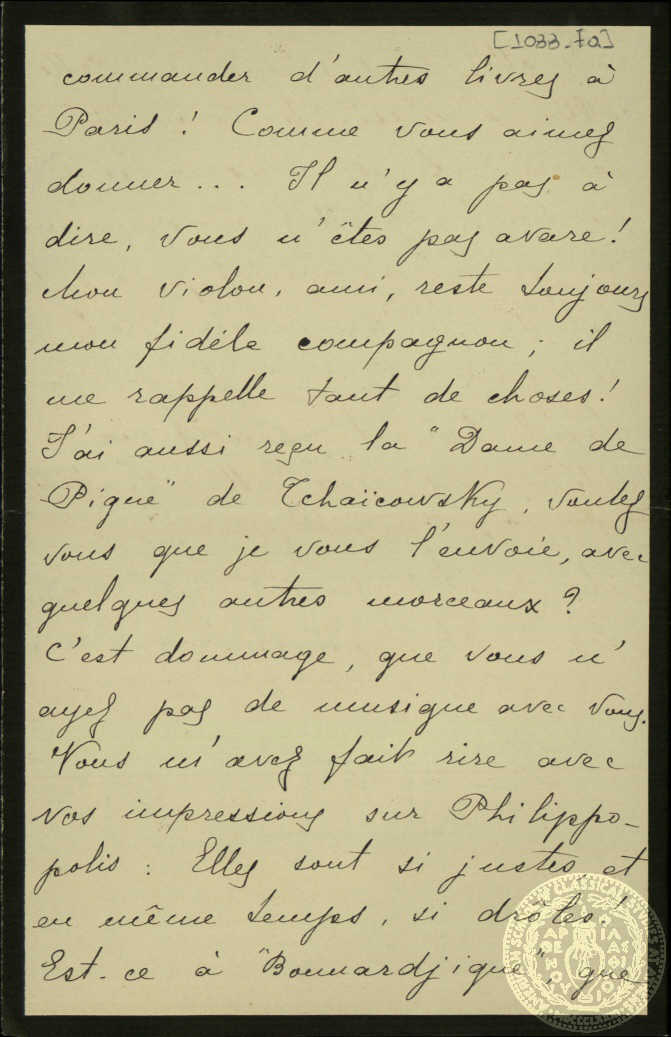 [1033.7a]
commander d'autres livres à
Paris ! Comme vous aimez
donner... Il n'y a pas à
dire, vous n'êtes pas avare !
Mon violon, ami, reste toujours
mon fidèle compagnon ; il
me rappelle tant de choses !
J'ai aussi reçu la "Dame de
Pique" de Tchaïcowsky, voulez
vous que je vous l'envoie, avec
quelques autres morceaux ?
C'est dommage, que vous n'
ayez pas de musique avec vous.
Vous m'avez fait rire avec
vos impressions sur Philippo-
polis : Elles sont si justes et
en même temps, si drôles !
Est-ce à "Bounardjique", que